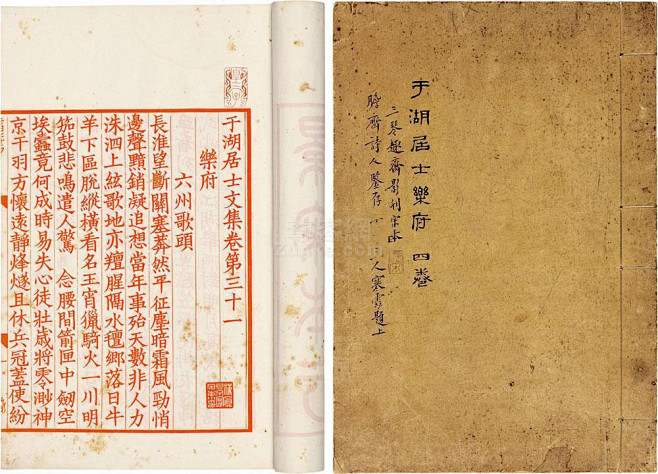 于湖居士文集卷第三十一
樂府
六州歌頭
長淮望斷關塞莽然平 征塵暗霜風勁悄
邊聲黯銷凝追想當年事殆天數非人力
洙泗上絃歌地亦羶腥隔水氊鄉落日牛
羊下區脫縱橫看名王宵獵騎火一川明
笳鼓悲鳴遣人驚 念腰間箭匣中劒空
埃蠹竟何成時易失心徒壯歲將零渺神
京干羽方懷遠靜烽燧且休兵冠蓋使紛
于湖居士樂府 四卷
三琴趣齋影刊宋本
詩人鑒存 人寒雲題上